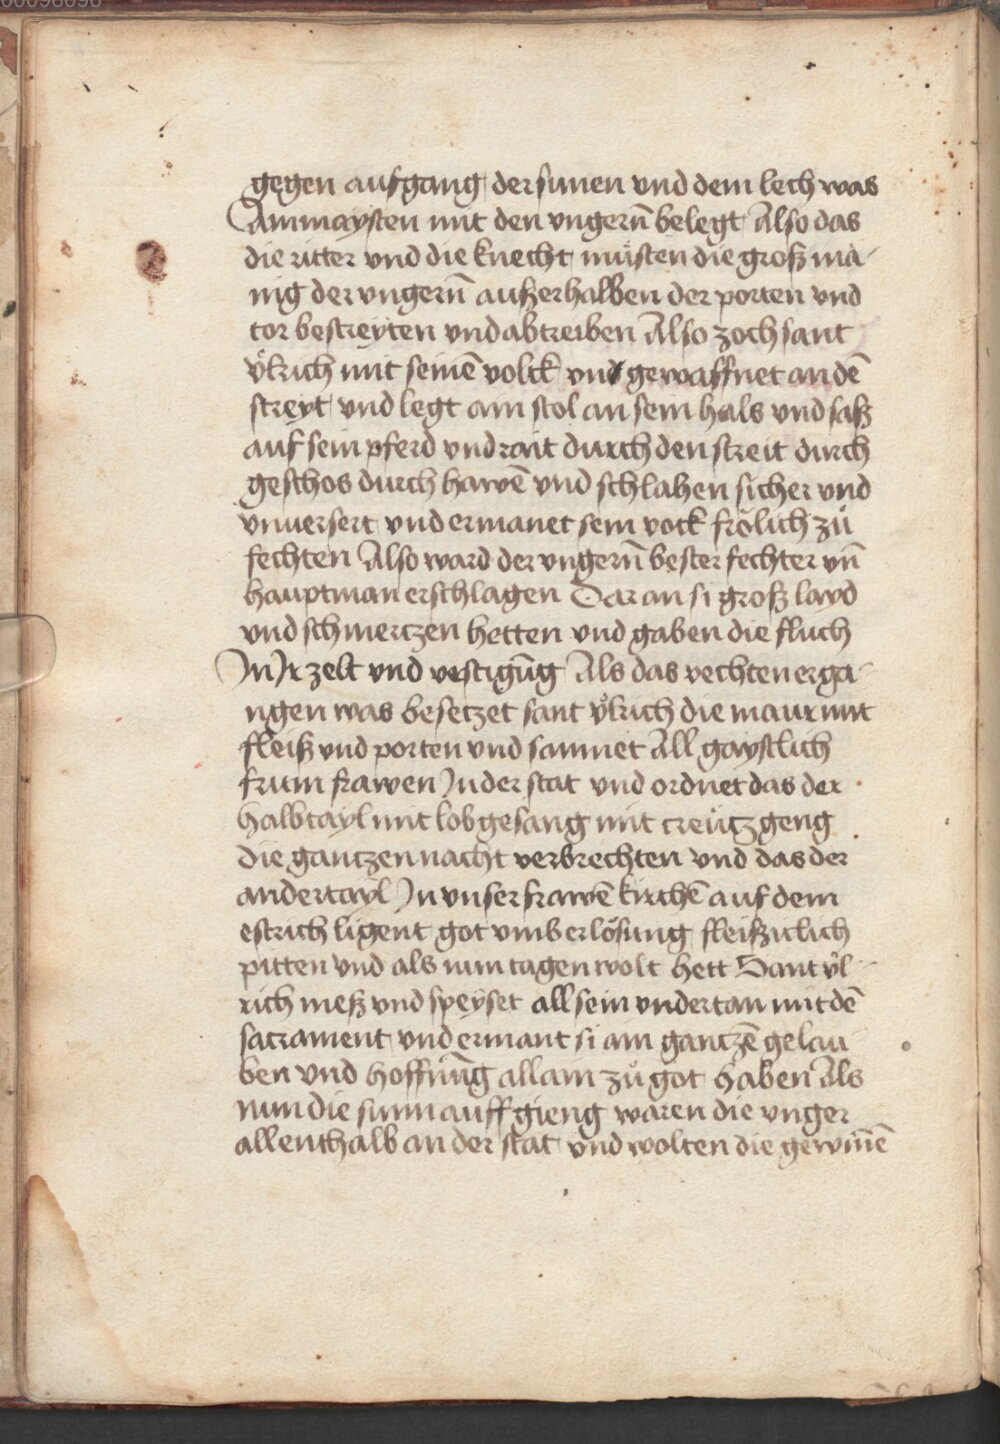 00096096
gegen aufgang der sunen vnd dem lech was
Am maysten mit den vngern̄ belegt Also das
die ritter vnd die knecht muͤsten die groß mä-
nig der vngern̄ außerhalben der porten vnd
tor bestreyten vnd abtreiben Also zoch sant
vͦlrich mit seinē volck vnd gewaffnet an dē
streyt vnd legt ain stol an sein hals vnd saß
auf sein pferd vnd rait durch den streit durch
geschos durch hawē vnd schlahen sicher vnd
vnuersert vnd ermanet sein vock frölich zuͦ
fechten Also ward der vngern̄ bester fechter vn̄
hauptman erschlagen Daran si groß layd
vnd schmertzen hetten vnd gaben die fluch
In Ir zelt vnd vestigūg Als das vechten erga-
ngen was besetzet sant vͦlrich die maur mit
fleiß vnd porten vnd samnet All gaystlich
frum frawen In der stat vnd ordnet das der
halb tayl mit lobgesang mit creütz geng
die gantzen nacht verbrechten vnd das der
ander tayl In vnser frawē kirchē auf dem
estrich ligent got vmb erlösung fleißiclich
pitten vnd als nun tagen wolt hett Sant vͦl-
rich meß vnd speyset all sein vndertan mit dē
sacrament vnd ermant si ain gantzē gelau
ben vnd hoffnūg allain zuͦ got haben Als
nun die sunn auff gieng waren die vnger
allenthalb an der stat vnd wolten die gewin̄ē